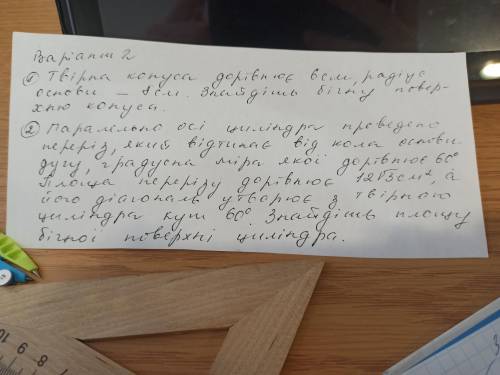 Варіант 2
① Твірна конуса дорівнює 8см, радіус
основи – см. Знайдіть бічну повер-
хню конуса.
② Паралельно осі циліндра проведено
переріз, який відтинає від кола основи
дугу, градусна міра якої дорівнює 60°
Площа перерізу дорівнює 12√3см², а
його діагональ утворює з твірною
циліндра кут 60°. Знайдіть площу
бічної поверхні циліндра.
10 9 8 7 6